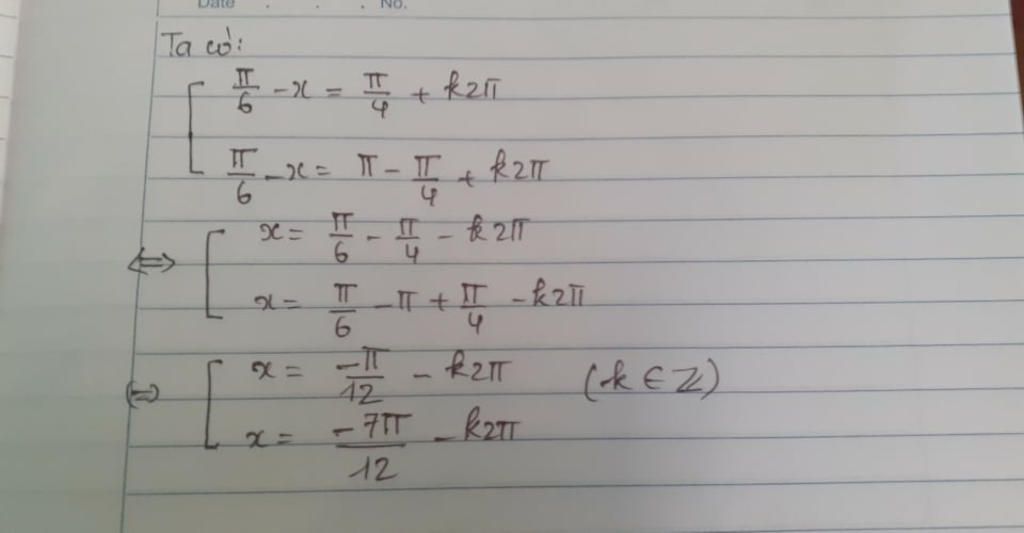 Date . . . No.
Ta có:
[ π/6 - x = π/4 + k2π
[ π/6 - x = π - π/4 + k2π
⇔ [ x = π/6 - π/4 - k2π
[ x = π/6 - π + π/4 - k2π
⇔ [ x = -π/12 - k2π (k ∈ ℤ)
[ x = -7π/12 - k2π